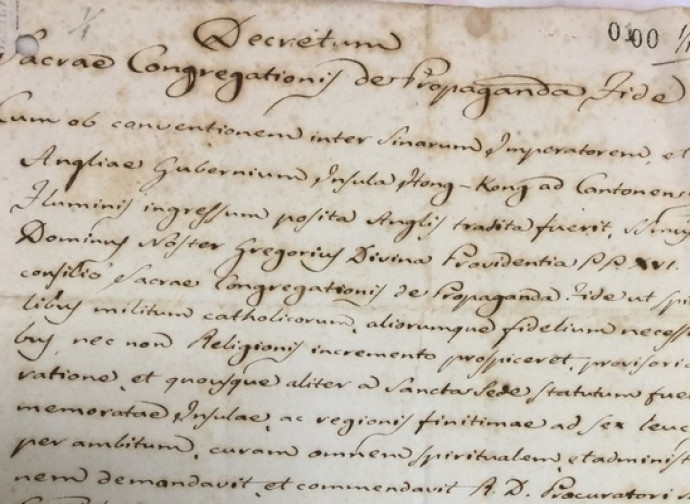 0100
Decretum
Sacrae Congregationis de Propaganda Fide
Cum ob conventionem inter Sinarum Imperatorem, et
Angliae Gubernium Insula Hong-Kong ad Cantonens
Fluminis ingressum posita Anglis tradita fuerit, SSmus
Dominus Noster Gregorius Divina Providentia PP. XVI.
consilio Sacrae Congregationis de Propaganda Fide ut spi
libus militum catholicorum, aliorumque fidelium necessi
bus, nec non Religionis incremento prospiceret, provisori
ratione, et quousque aliter a Sancta Sede statutum fue
memoratae Insulae, ac regionis finitimae ad sex leuc
per ambitum, curam omnem spiritualem, et administ
nem demandavit, et commendavit R. D. Procuratori